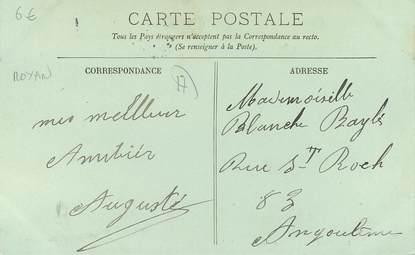 6€
CARTE POSTALE
Tous les Pays étrangers n'acceptent pas la Correspondance au recto.
(Se renseigner à la Poste).
ROYAN
17
CORRESPONDANCE
mes meilleur
Amitiér
Auguste
ADRESSE
Mademoiselle
Blanche Baylé
Rue St Roch
83
Angoulème